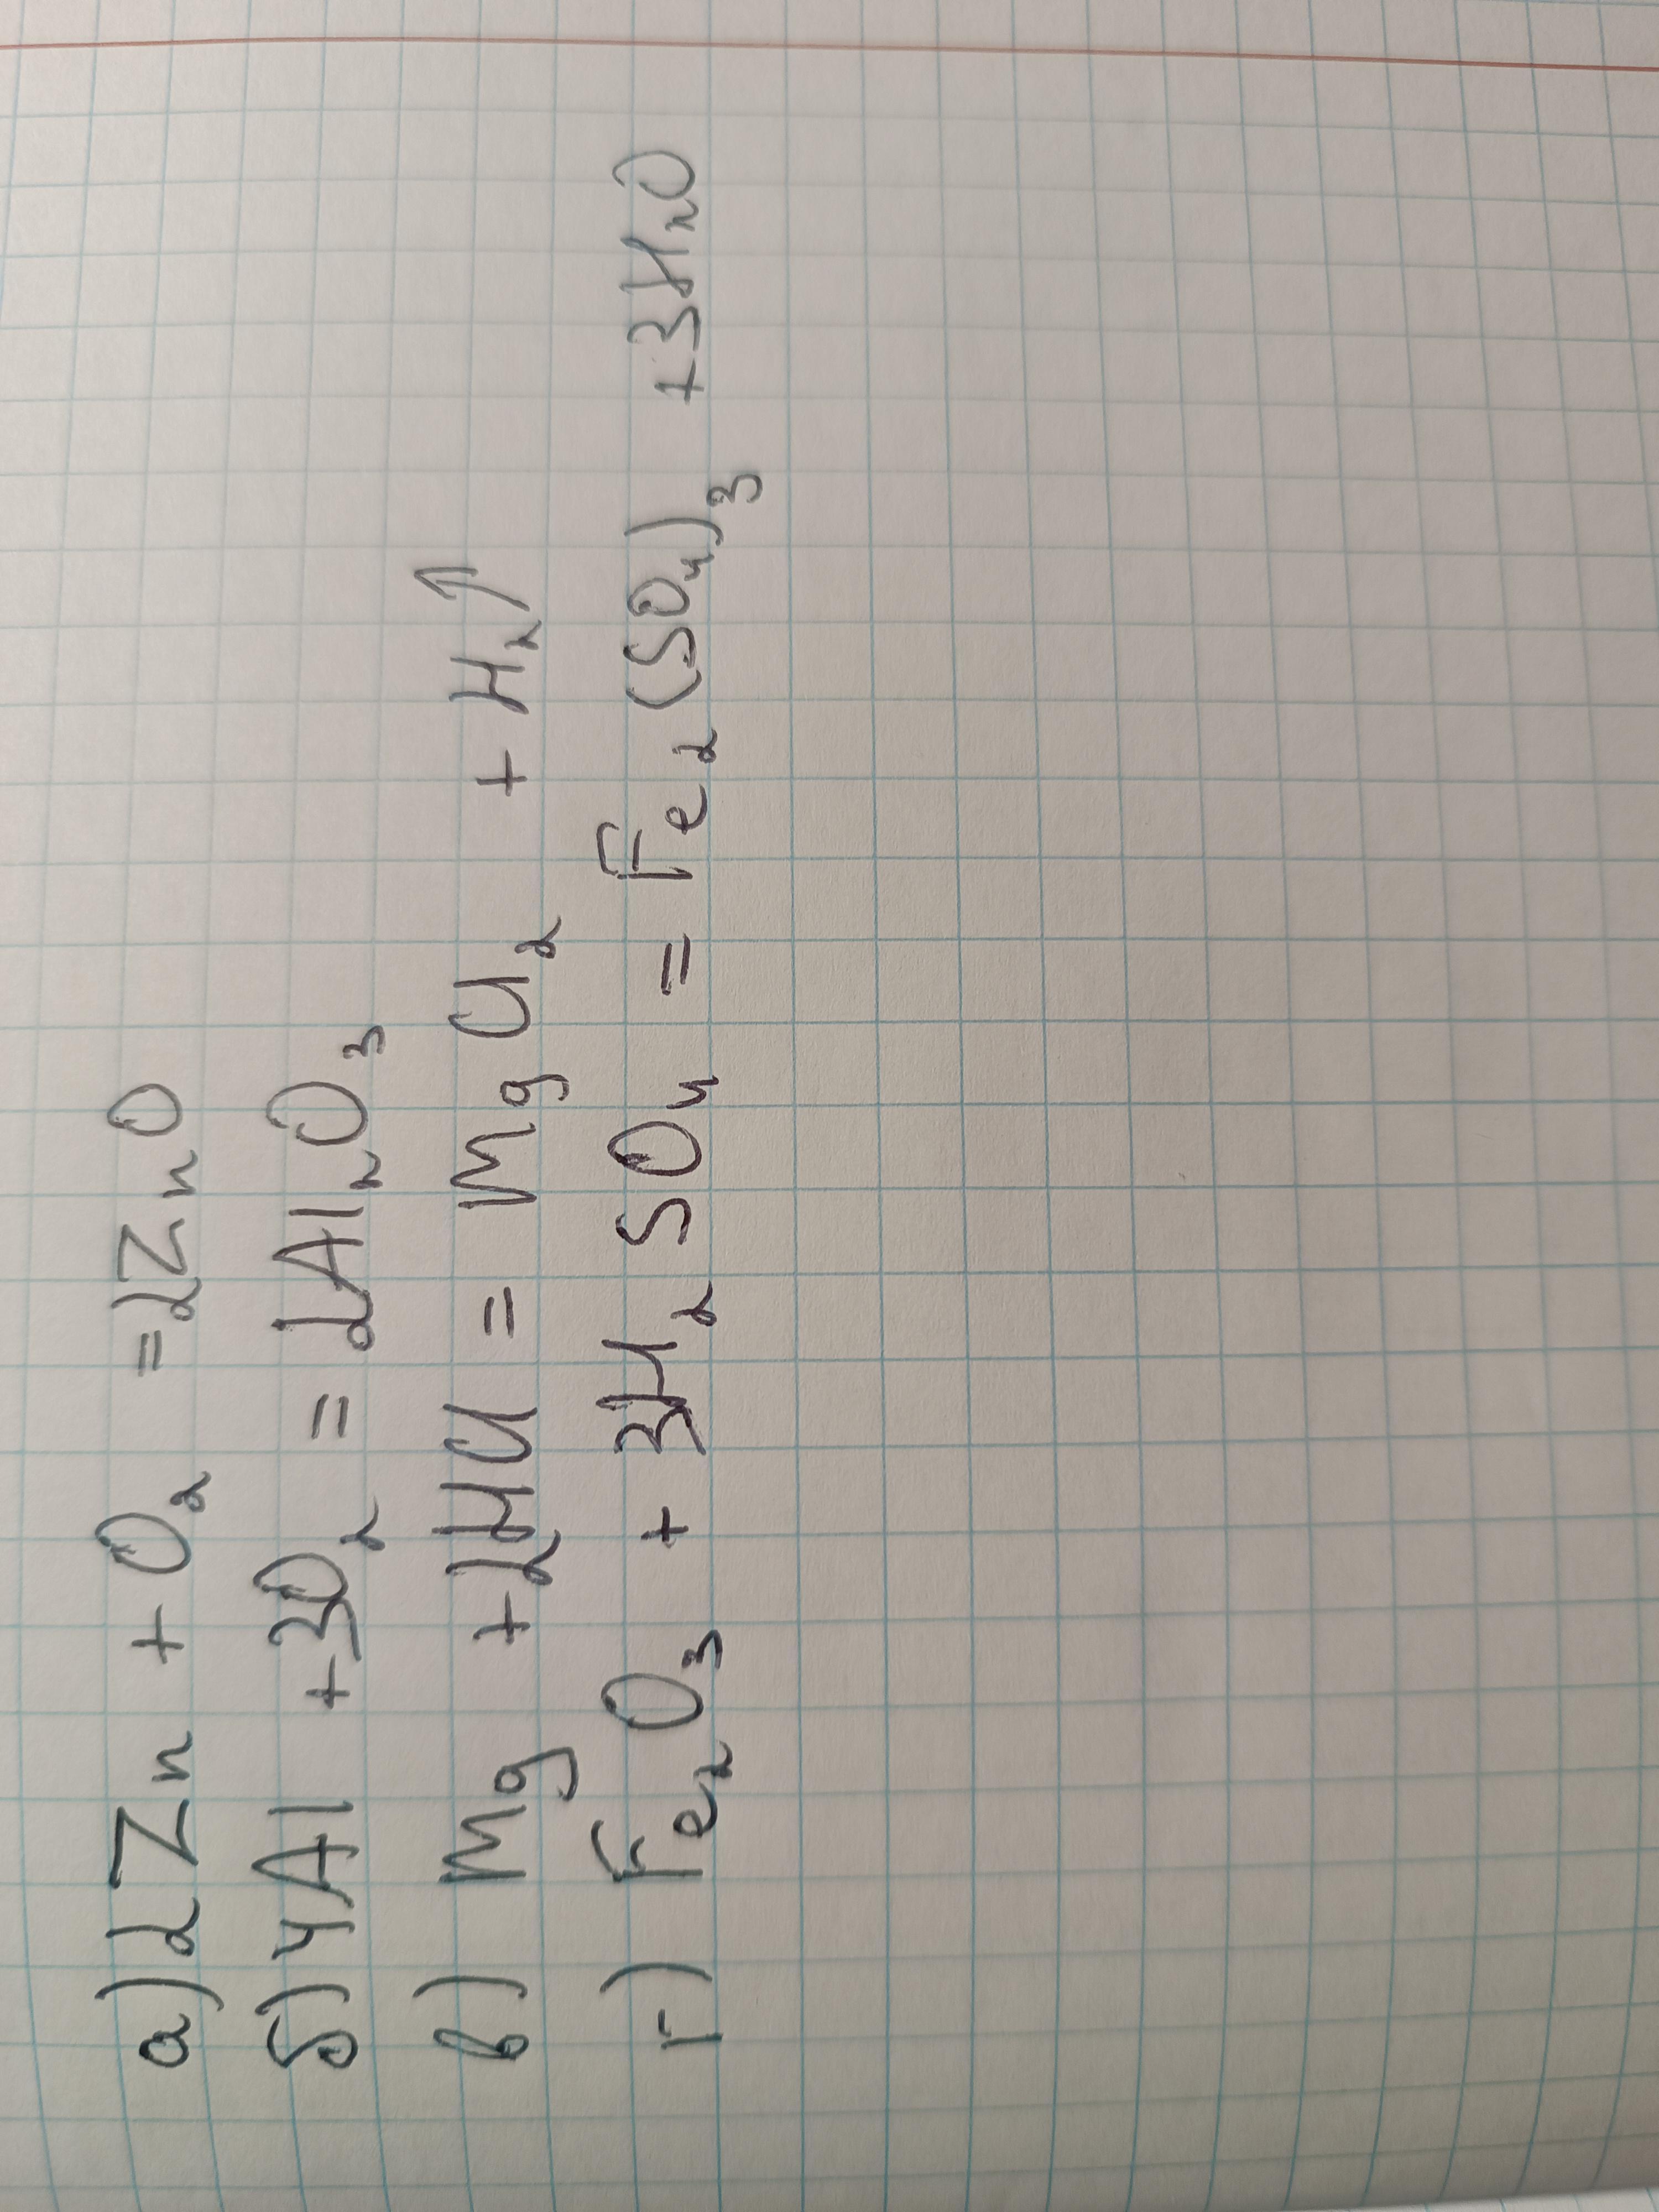 а) 2Zn + O₂ = 2ZnO
б) 4Al + 3O₂ = 2Al₂O₃
в) Mg + 2HCl = MgCl₂ + H₂↑
г) Fe₂O₃ + 3H₂SO₄ = Fe₂(SO₄)₃ + 3H₂O